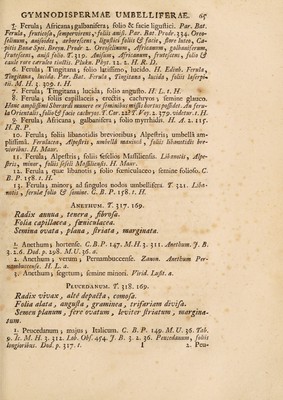 GYMNODISPERMÆ UMBELLIFERÆ. 65
7. Ferula; Africana; galbanifera; folio & facie liguſtici. Par. Bat.
Ferula, fruteſcens, ſempervirens, foliis aniſi. Par. Bat. Prodr. 334. Oreo-
ſelinum, aniſoides, arboreſcens, liguſtici foliis & facie, flore luteo, Ca-
pitis Bonæ Spei. Breyn. Prodr. 2. Oreoſelinum, Africanum, galbaniferum,
fruteſcens, aniſi folio. T. 319. Aniſum, Africanum, fruteſcens, folio &
caule rore cæruleo tinctis. Pluk. Phyt. 12. 2. H. R. D.
6. Ferula; Tingitana; folio latiſſimo; lucido. H. Edinb. Ferula,
Tingitana, lucida. Par. Bat. Ferula, Tingitana, lucida, foliis laſerpi-
tii. M. H. 3. 309. t. H.
7. Ferula; Tingitana; lucida; folio anguſto. H. L. t. H.
8. Ferula; foliis capillaceis, erectis, cachryos; ſemine glauco.
Hanc ampliſſimi Sherardi munere ex ſeminibus miſſis hortus poſſidet. An feru-
la Orientalis, folio & facie cachryos. T. Cor. 22? T. Voy. 2. 379. videtur. t. H.
9. Ferula; Africana; galbanifera; folio myrrhidis. H. A. 2. 115.
H. R. P.
10. Ferula; foliis libanotidis brevioribus; Alpeſtris; umbellâ am-
pliſſimâ. Ferulacea, Alpeſtris, umbellâ maximâ, foliis libanotidis bre-
vioribus. H. Maur.
11. Ferula, Alpeſtris; foliis ſeſelios Maſſilienſis. Libanotis, Alpe-
ſtris, minor, foliis ſeſeli Maſſilienſis. H. Maur.
12. Ferula; quæ libanotis, folio fœniculaceo; ſemine folioſo. C.
B. P. 158. t. H.
13. Ferula; minor; ad ſingulos nodos umbellifera. T. 321. Liba-
notis, ferulæ folio & ſemine. C. B. P. 158. t. H.
ANETHUM. T. 317. 169.
Radix annua, tenera, fibroſa.
Folia capillacea, fœniculacea.
Semina ovata, plana, ſtriata, marginata.
1. Anethum; hortenſe. C. B. P. 147. M. H. 3. 311. Anethum. J. B.
3. 2. 6. Dod. p. 298. M. U. 36. a.
2. Anethum; verum; Pernambuccenſe. Zanon. Anethum Per-
nambuccenſe. H. L. a.
3. Anethum; ſegetum; ſemine minori. Virid. Luſit. a.
PEUCEDANUM. T. 318. 169.
Radix vivax, altè depacta, comoſa.
Folia alata, anguſta, graminea, trifariam diviſa.
Semen planum, fere ovatum, leviter ſtriatum, margina-
tum.
1. Peucedanum; majus; Italicum. C. B. P. 149. M. U. 36. Tab.
9. 1. M. H. 3. 312. Lob. Obſ. 454. J. B. 3. 2. 36. Peucedanum, foliis
longioribus. Dod. p. 317. t.
I 2. Peu-